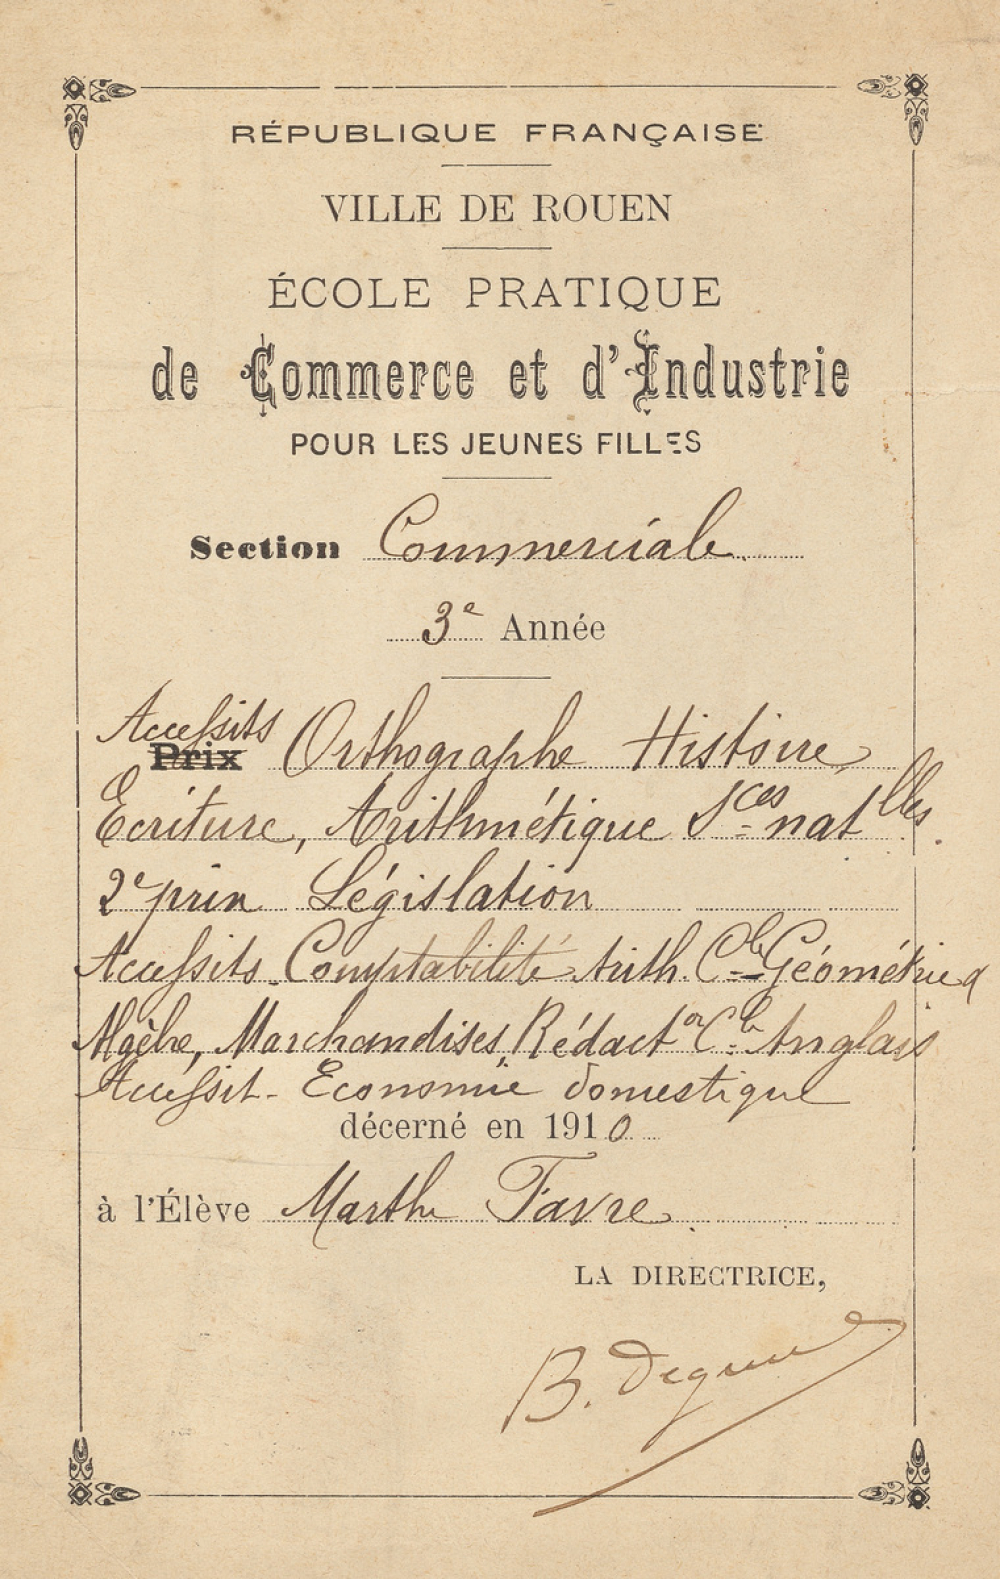 RÉPUBLIQUE FRANÇAISE
VILLE DE ROUEN
ÉCOLE PRATIQUE
de Commerce et d'Industrie
POUR LES JEUNES FILLES
Section Commerciale
3e Année
Accessits
Prix Orthographe Histoire
Ecriture, Arithmétique Sces nat lles
2e prix Législation
Accessits Comptabilité Arith. Cle Géométrie
Algèbre, Marchandises, Rédacton Cle Anglais
Accessit - Economie domestique
décerné en 1910
à l'Élève Marthe Favre
LA DIRECTRICE,
B.